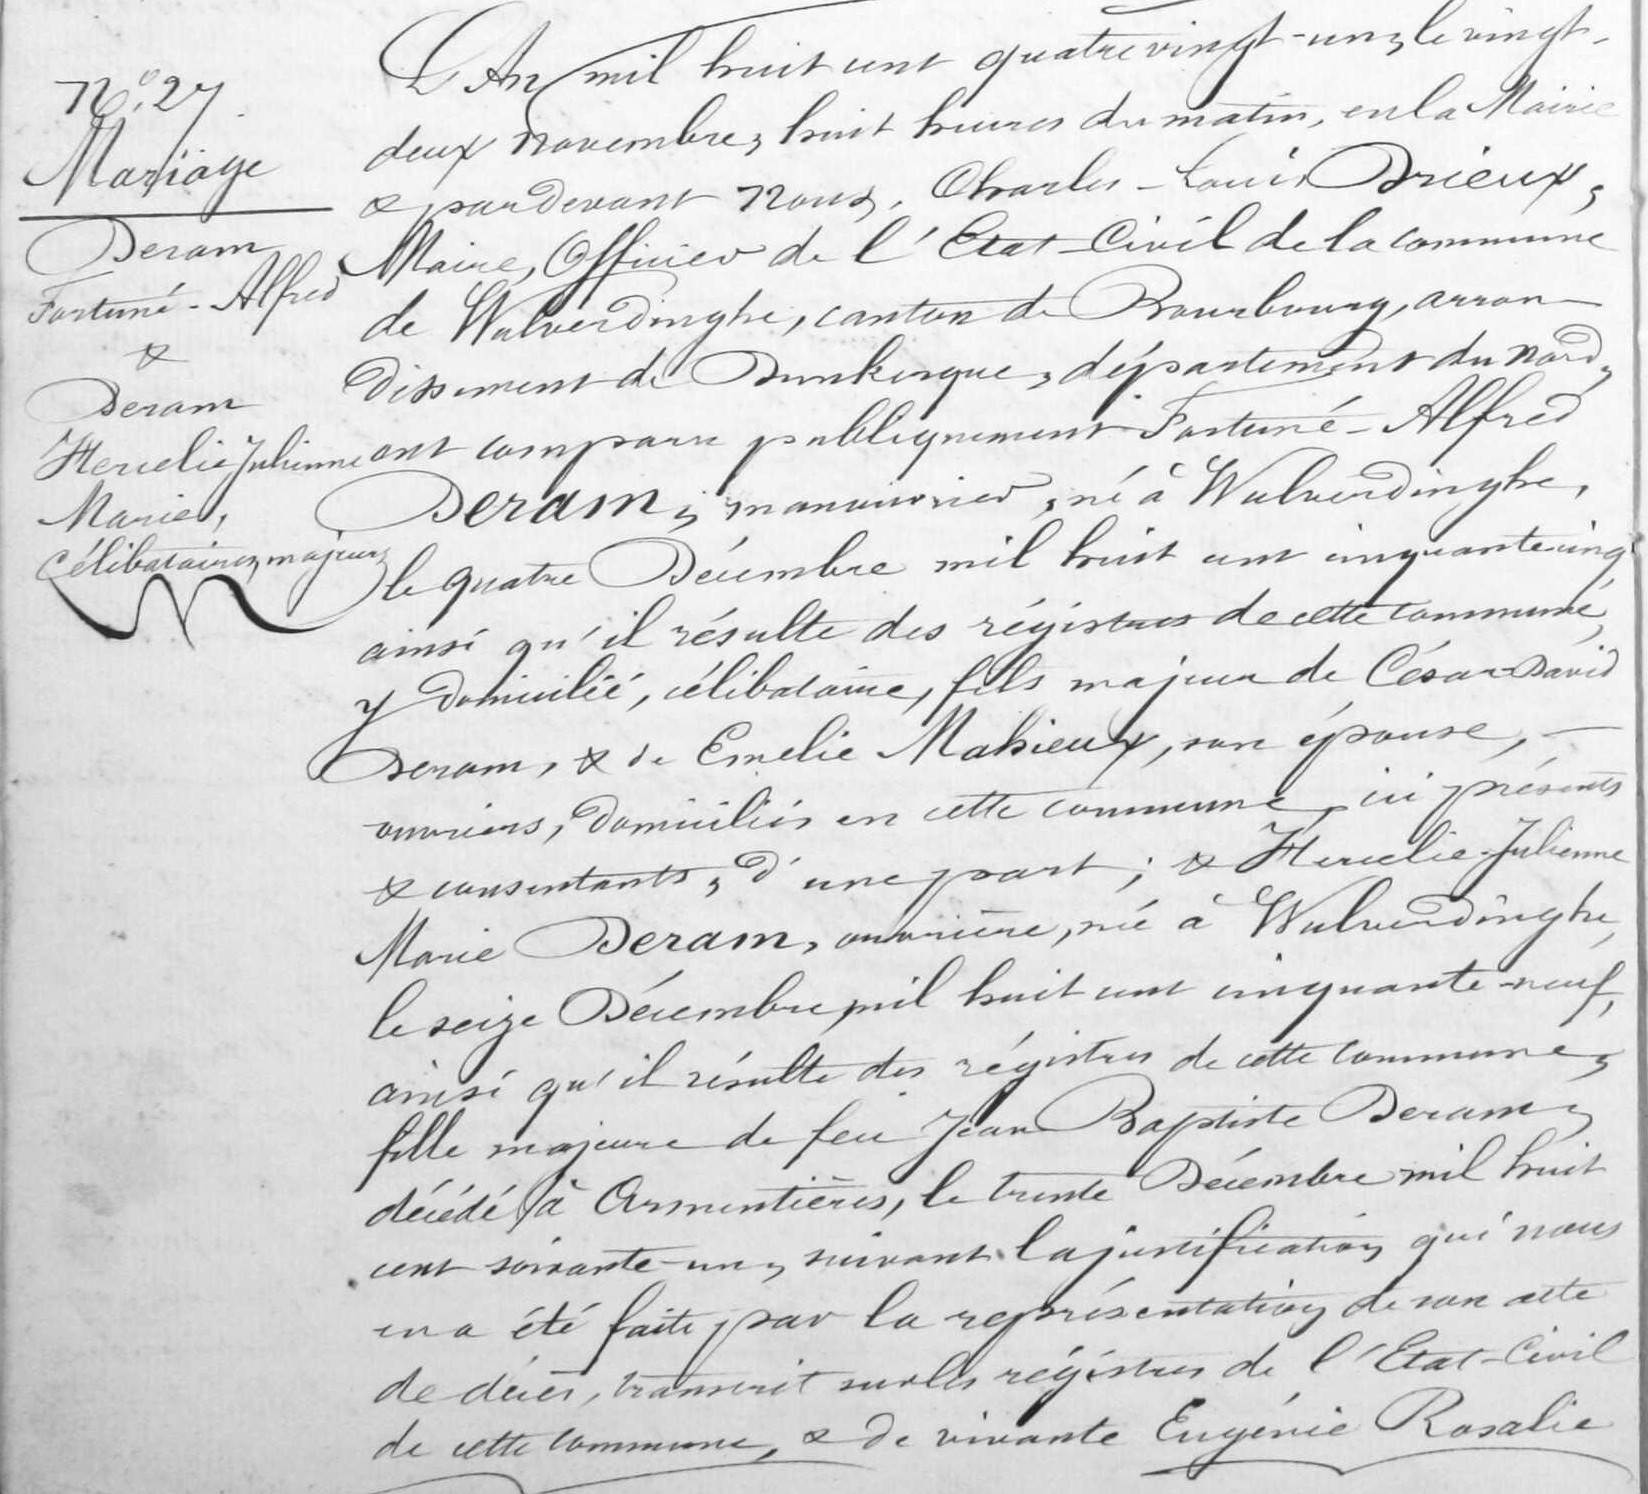 N.º 27
Mariage
Deram
Fortuné - Alfred
&
Deram
Herselie Julienne
Marie,
Célibataires, majeurs
L'An mil huit cent quatre vingt-un, le vingt-
deux Novembre, huit heures du matin, en la Mairie
& pardevant Nous, Charles-Louis Drieux,
Maire, Officier de l'Etat-Civil de la commune
de Wulverdinghe, canton de Bourbourg, arron-
dissement de Dunkerque, département du Nord,
ont comparu publiquement Fortuné-Alfred
Deram, manouvrier, né à Wulverdinghe,
le quatre Décembre mil huit cent cinquante-cinq
ainsi qu'il résulte des régistres de cette commune,
y domicilié, célibataire, fils majeur de César-David
Deram, & de Emelie Mahieux, son épouse, -
ouvriers, domiciliés en cette commune, ici présents
& consentants, d'une part; & Herselie-Julienne
Marie Deram, ouvrière, née à Wulverdinghe,
le seize Décembre mil huit cent cinquante-neuf,
ainsi qu'il résulte des régistres de cette commune,
fille majeure de feu Jean Baptiste Deram,
décédé à Armentières, le trente Décembre mil huit
cent soixante-un, suivant la justification qui nous
en a été faite par la représentation de son acte
de décès, transcrit sur les régistres de l'Etat-Civil
de cette commune, & de vivante Eugénie Rosalie